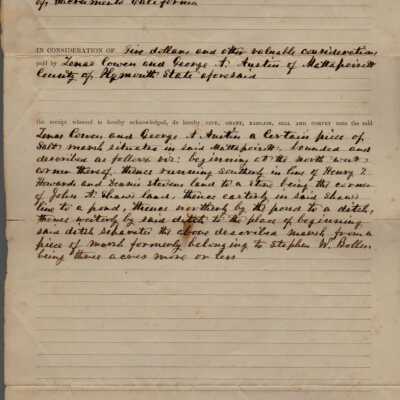 of Sacramento California
IN CONSIDERATION OF Five dollars and other valuable considerations
paid by Zenas Cowen and George A. Austin of Mattapoisett
County of Plymouth State aforesaid
the receipt whereof is hereby acknowledged, do hereby GIVE, GRANT, BARGAIN, SELL AND CONVEY unto the said
Zenas Cowen and George A. Austin a certain piece of
Salt marsh situated in said Mattapoisett bounded and
described as follows viz: beginning at the north west
corner thereof, thence running southerly in line of Henry
Howards and Dennis Stevens land to a stone being the corner
of John A. Shaws land, thence easterly in said Shaws
line to a pond, thence northerly by the pond to a ditch,
thence westerly by said ditch to the place of beginning
said ditch separates the above described marsh from a
piece of marsh formerly belonging to Stephen W.
being three acres more or less